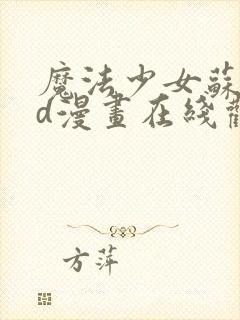 魔法少女蘇
d漫畫在綫觀
方萍